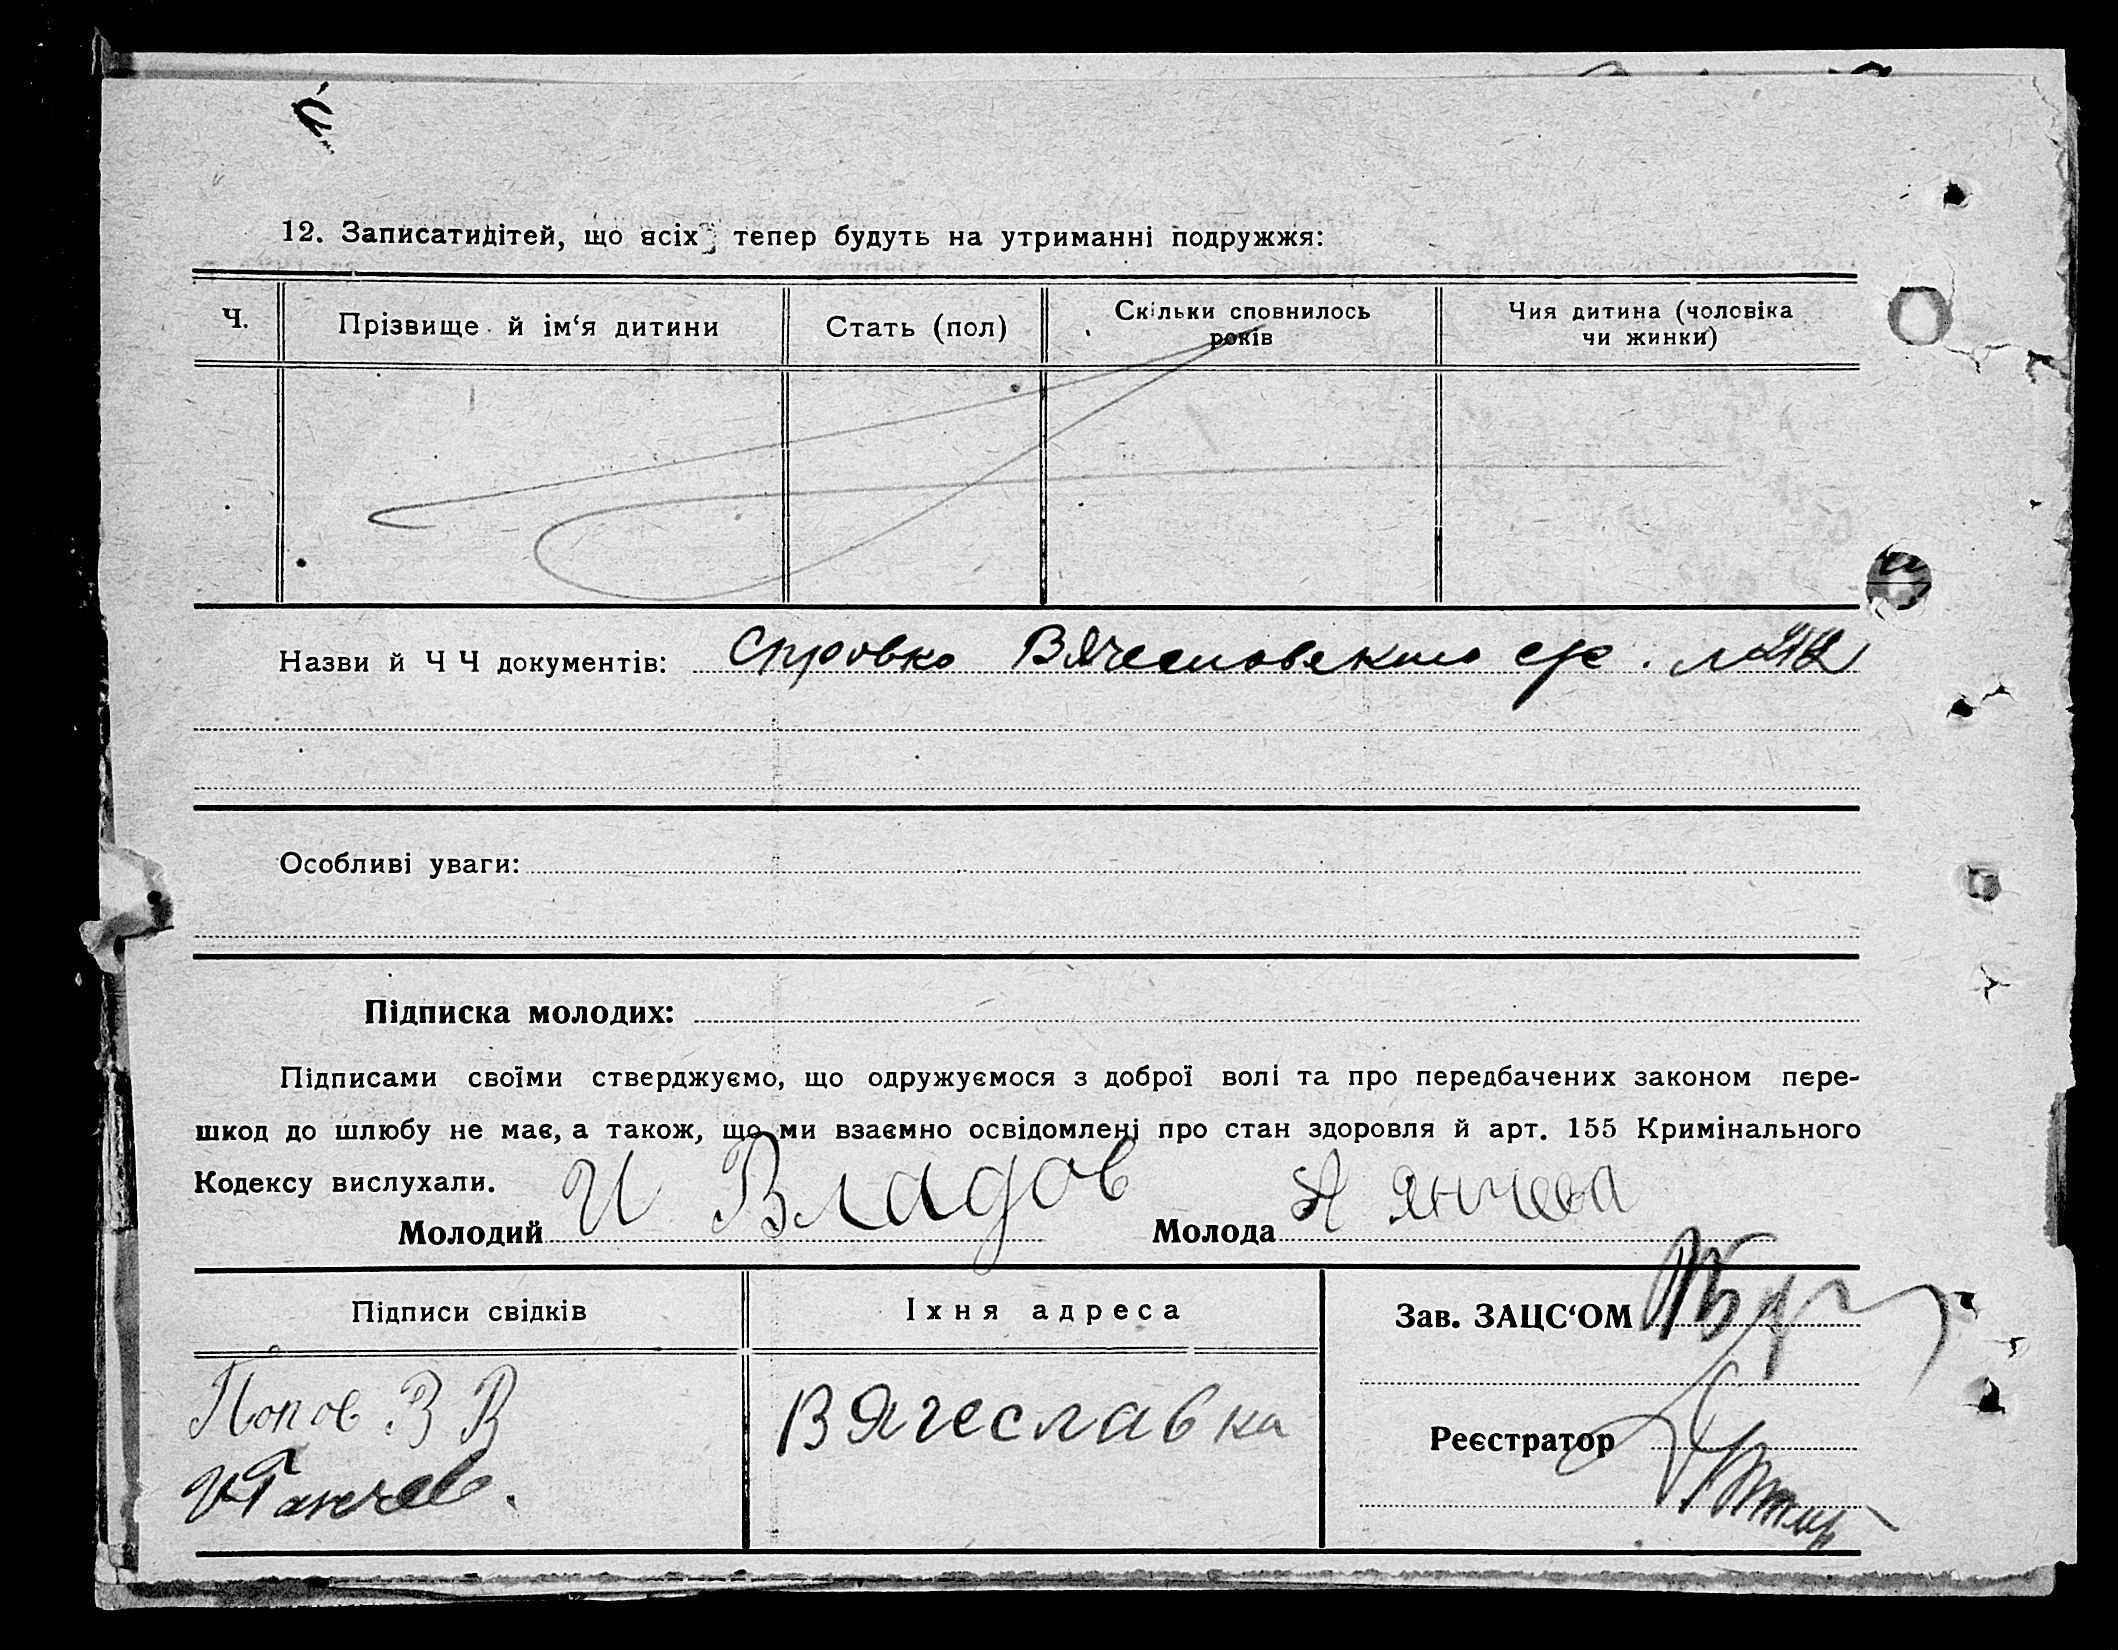 12. Записатидітей, що всіх тепер будуть на утриманні подружжя:
Ч.
Прізвище й ім‘я дитини
Стать (пол)
Скільки сповнилось
років
Чия дитина (чоловіка
чи жинки)
Назви й Ч Ч документів: Справка Вячеславского с/с. №
Особливі уваги:
Підписка молодих:
Підписами своїми стверджуємо, що одружуємося з доброї волі та про передбачених законом пере-
шкод до шлюбу не має, а також, що ми взаємно освідомлені про стан здоровля й арт. 155 Кримінального
Кодексу вислухали.
Молодий И Владов Молода Я Янчева
Підписи свідків
Їхня адреса
Зав. ЗАЦС‘ОМ
Попов В В
Вячеславка
Реєстратор
И Ганчев.